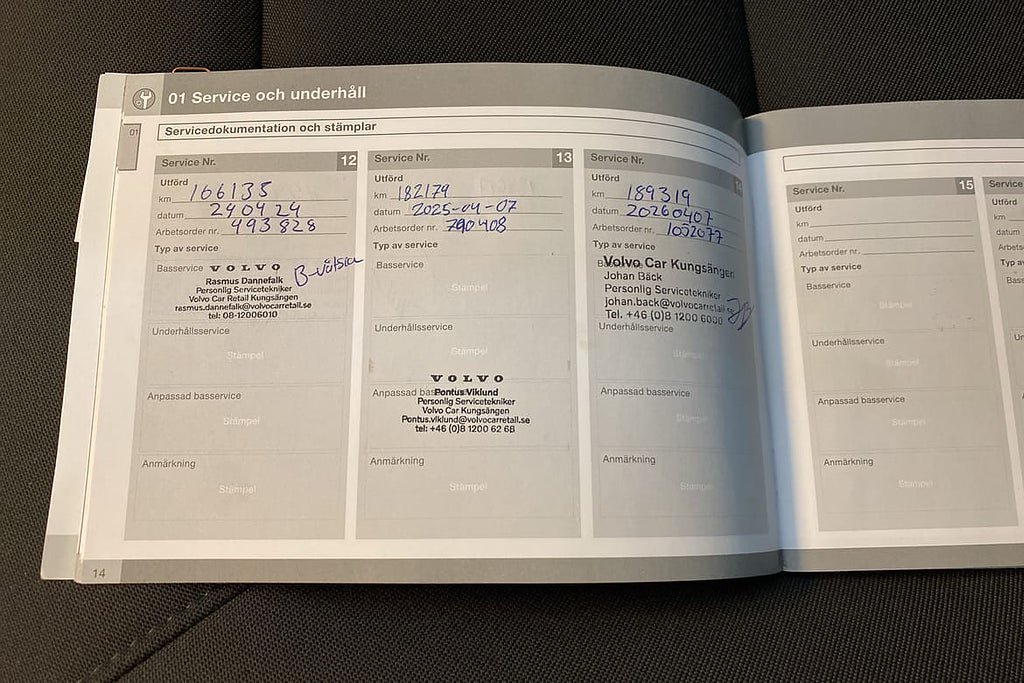 01 Service och underhåll
01
Servicedokumentation och stämplar
Service Nr. 12
Utförd
km 166135
datum 240424
Arbetsorder nr. 493828
Typ av service
Basservice VOLVO B-växla
Rasmus Dannefalk
Personlig Servicetekniker
Volvo Car Retail Kungsängen
rasmus.dannefalk@volvocarretail.se
tel: 08-12006010
Underhållsservice
Stämpel
Anpassad basservice
Stämpel
Anmärkning
Stämpel
Service Nr. 13
Utförd
km 182179
datum 2025-04-07
Arbetsorder nr. 790408
Typ av service
Basservice
Stämpel
Underhållsservice
Stämpel
VOLVO
Anpassad basservice
Pontus Viklund
Personlig Servicetekniker
Volvo Car Kungsängen
Pontus.viklund@volvocarretail.se
tel: +46 (0)8 1200 62 68
Anmärkning
Stämpel
Service Nr.
Utförd
km 189319
datum 20260407
Arbetsorder nr. 1052077
Typ av service
Volvo Car Kungsängen
Johan Bäck
Personlig Servicetekniker
johan.back@volvocarretail.se
Tel. +46 (0)8 1200 6000
Underhållsservice
Stämpel
Anpassad basservice
Stämpel
Anmärkning
Stämpel
Service Nr. 15
Utförd
km
datum
Arbetsorder nr.
Typ av service
Basservice
Stämpel
Underhållsservice
Stämpel
Anpassad basservice
Stämpel
Anmärkning
Stämpel
Service
Utförd
km
datum
14